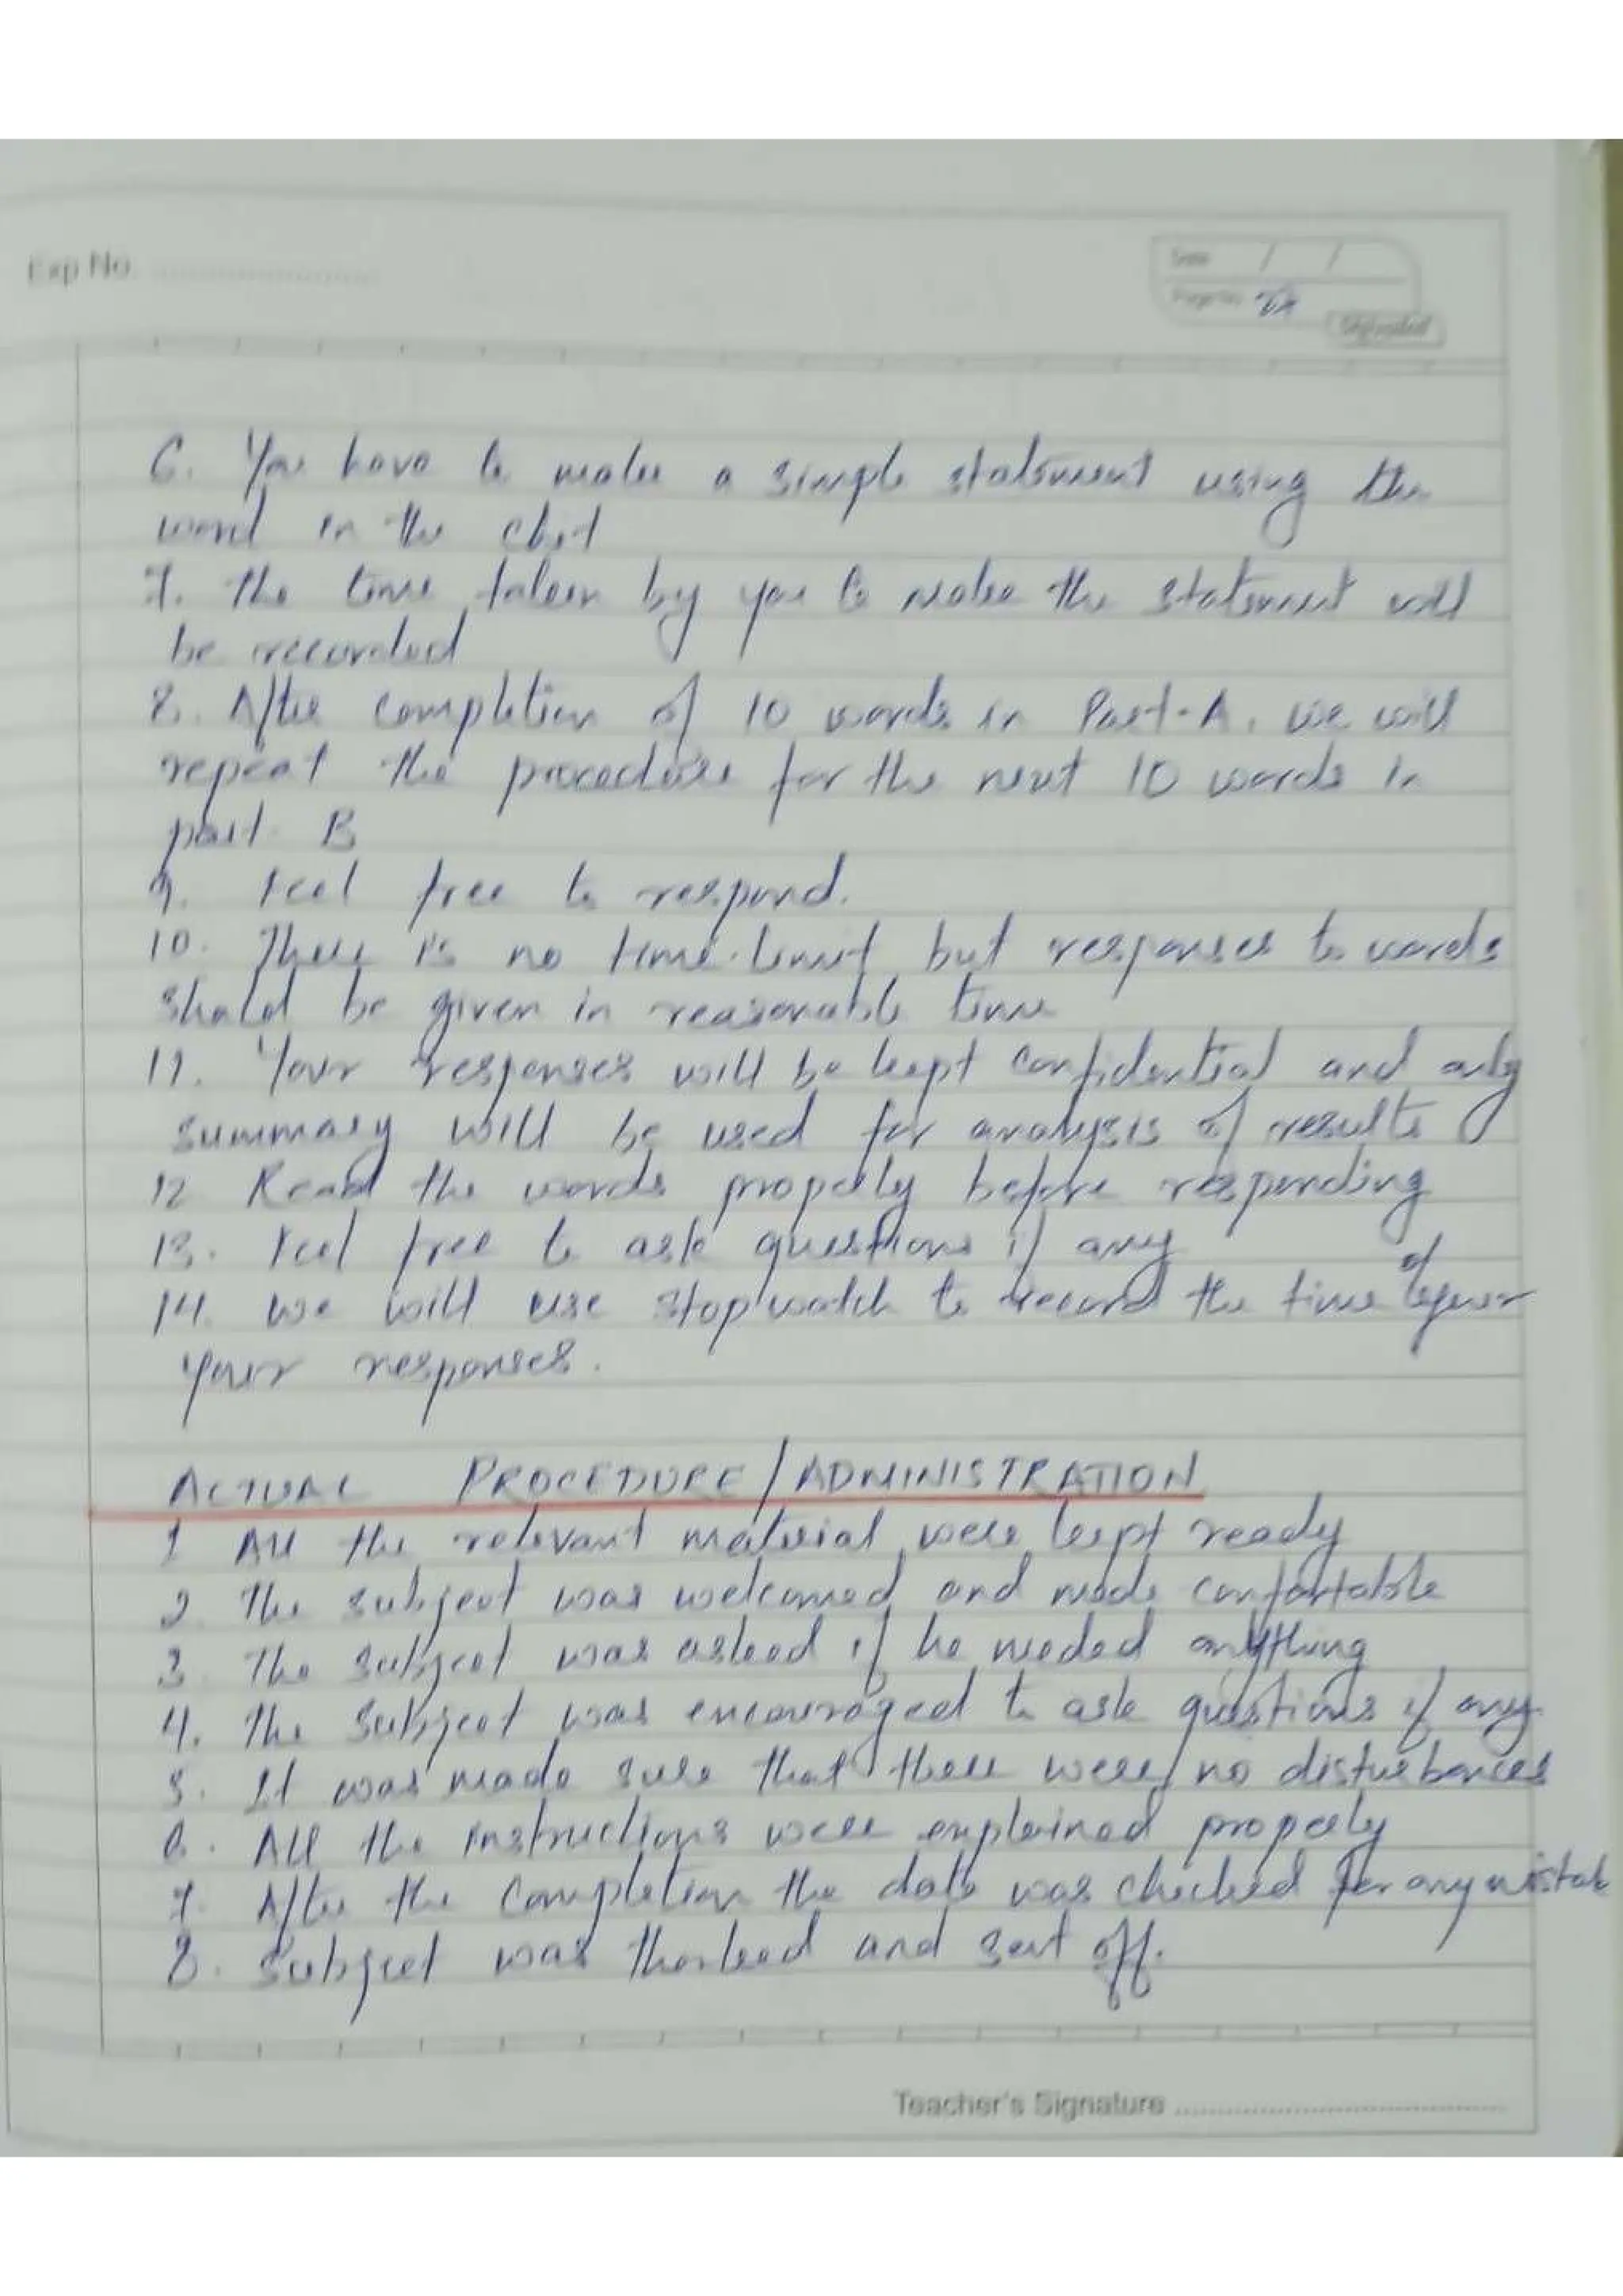 Exp No.
Date / /
Page No.
6. You have to make a simple statement using the
word in the chit
7. The time taken by you to make the statement will
be recorded
8. After completion of 10 words in Part-A, we will
repeat the procedure for the next 10 words in
part B
9. Feel free to respond.
10. There is no time limit but responses to words
should be given in reasonable time
11. Your responses will be kept confidential and only
summary will be used for analysis of results
12 Read the words properly before responding
13. Feel free to ask questions if any
14. We will use stopwatch to record the time of
your responses.
ACTUAL PROCEDURE/ADMINISTRATION
1 All the relevant material were kept ready
2. The subject was welcomed and made comfortable
3. The subject was asked if he needed anything
4. The subject was encouraged to ask questions if any
5. It was made sure that there were no disturbances
6. All the instructions were explained properly
7. After the completion the data was checked for any mistak
8. Subject was thanked and sent off.
Teacher's Signature